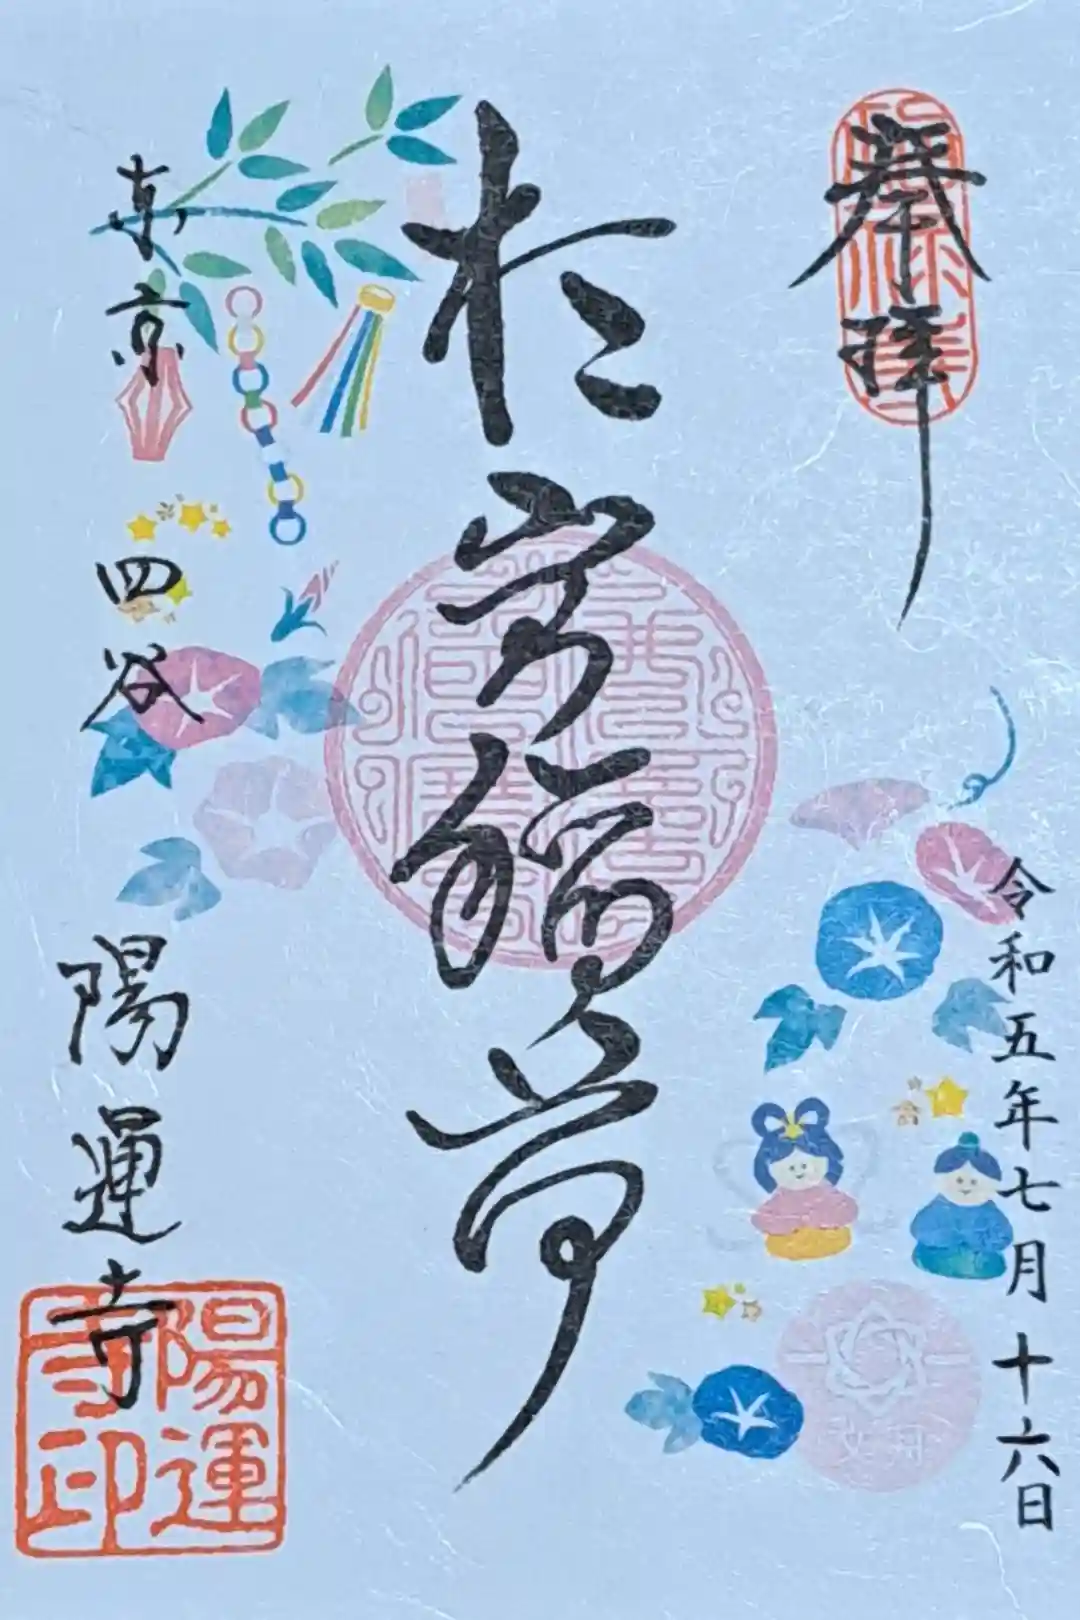 奉拝
令和五年七月十六日
於岩稲荷
東京 四谷 陽運寺
陽運
寺印